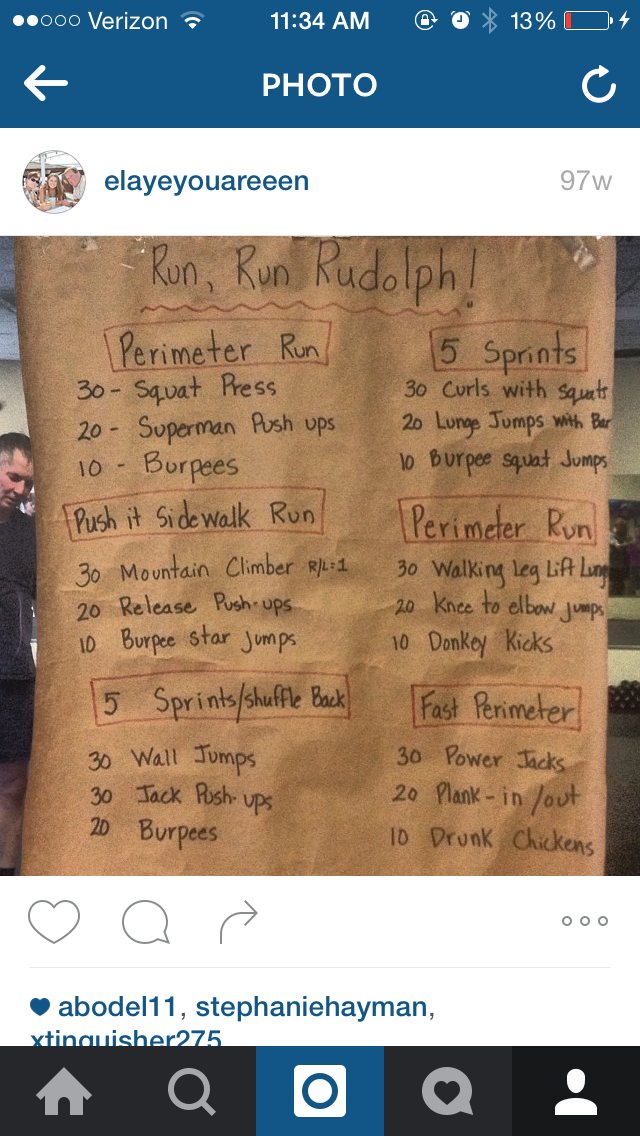 Verizon 11:34 AM 13%
PHOTO
elayeyouareeen 97w
Run, Run Rudolph!
Perimeter Run
30 - Squat Press
20 - Superman Push ups
10 - Burpees
Push it Sidewalk Run
30 Mountain Climber R/L=1
20 Release Push-ups
10 Burpee star jumps
5 Sprints/shuffle Back
30 Wall Jumps
30 Jack Push-ups
20 Burpees
5 Sprints
30 Curls with squats
20 Lunge Jumps with Bar
10 Burpee squat Jumps
Perimeter Run
30 Walking Leg Lift Lung
20 Knee to elbow jumps
10 Donkey Kicks
Fast Perimeter
30 Power Jacks
20 Plank - in /out
10 Drunk Chickens
abodel11, stephaniehayman,
xtinguisher275